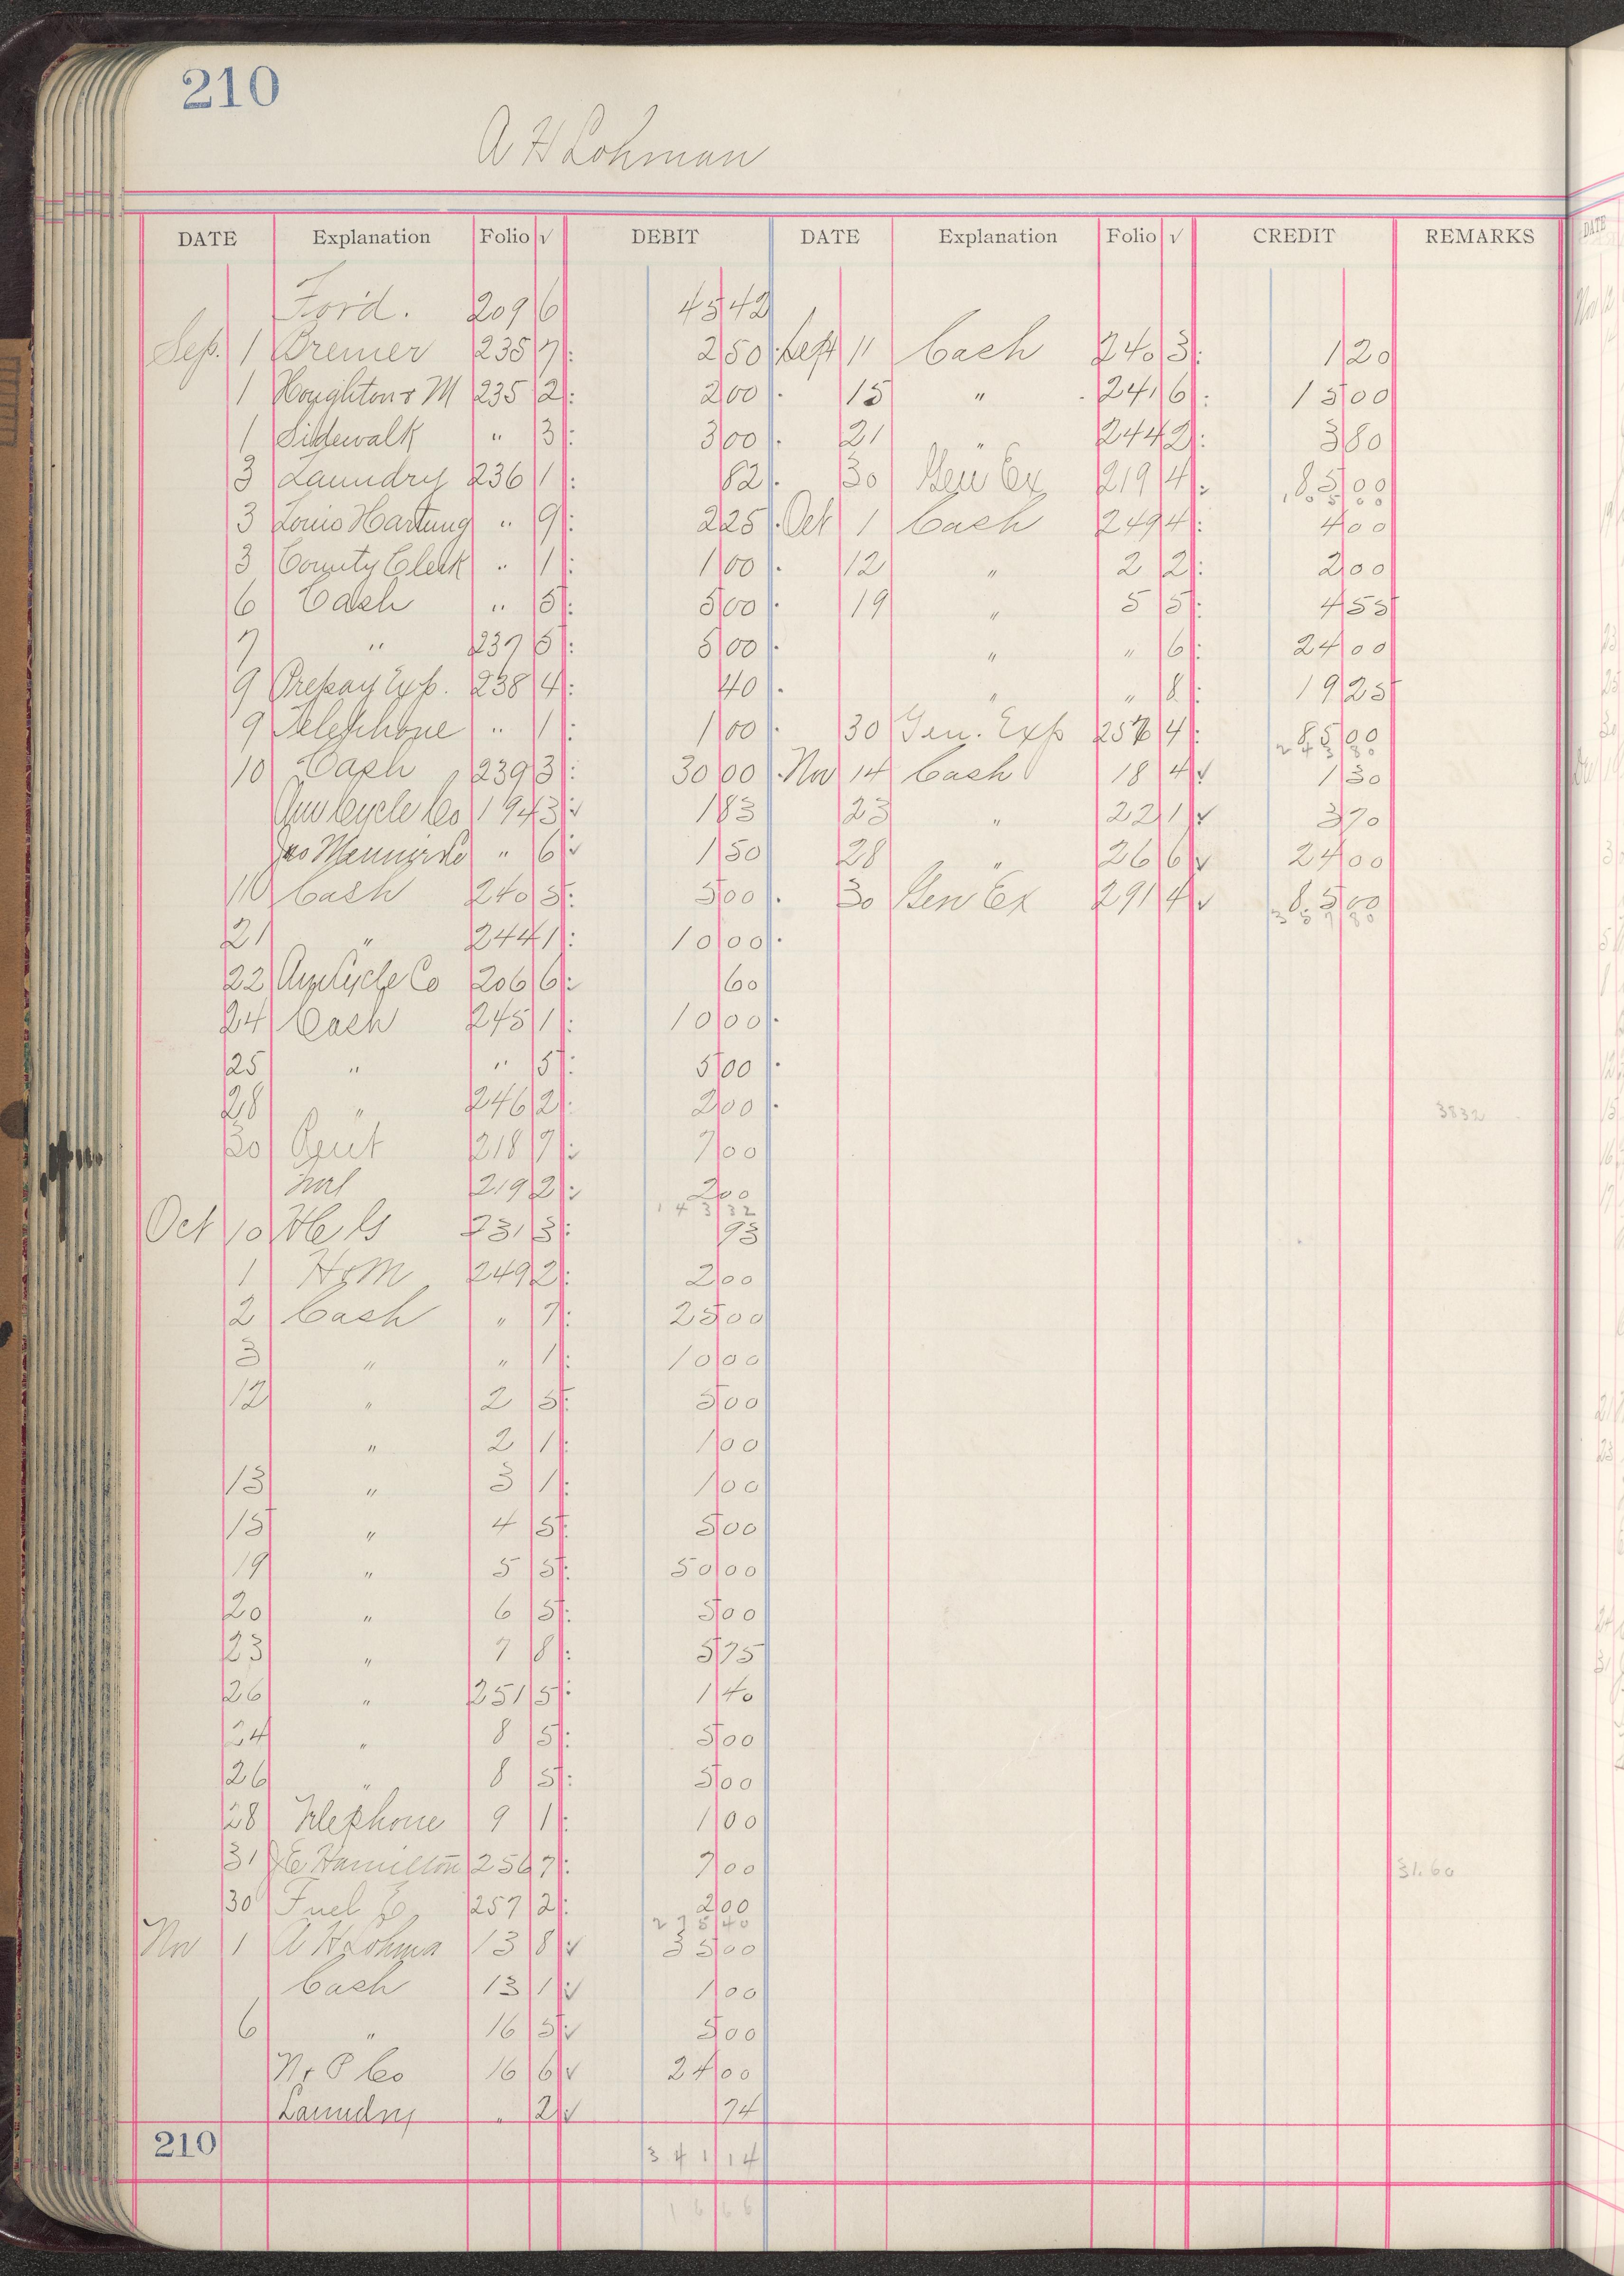 210
A H Lohman
DATE Explanation Folio √ DEBIT DATE Explanation Folio √ CREDIT REMARKS
Ford. 209 6 45 42
Sep. 1 Bremer 235 7 2 50 Sept 11 Cash 240 3 1 20
1 Houghton & M 235 2 2 00 15 " 241 6 15 00
1 Sidewalk " 3 3 00 21 " 244 2 3 80
3 Laundry 236 1 82 30 Gen Ex 219 4 85 00
105 00
3 Louis Hartung " 9 2 25 Oct 1 Cash 249 4 4 00
3 County Clerk " 1 1 00 12 " 2 2 2 00
6 Cash " 5 5 00 19 " 5 5 4 55
7 " 237 5 5 00 " " 6 24 00
9 Prepay Exp. 238 4 40 " " 8 19 25
9 Telephone " 1 1 00 30 Gen. Exp 257 4 85 00
243 80
10 Cash 239 3 30 00 Nov 14 Cash 18 4 √ 1 30
Am Cycle Co 194 3 √ 1 83 23 " 22 1 √ 3 70
" 6 √ 1 50 28 " 26 6 √ 24 00
10 Cash 240 5 5 00 30 Gen Ex 291 4 √ 85 00
357 80
21 " 244 1 10 00
22 Am Cycle Co 206 6 60
24 Cash 245 1 10 00
25 " " 5 5 00
28 " 246 2 2 00
3832
30 Rent 218 7 7 00
219 2 2 00
143 32
Oct 10 231 3 93
1 H & M 249 2 2 00
2 Cash " 7 25 00
3 " " 1 10 00
12 " 2 5 5 00
" 2 1 1 00
13 " 3 1 1 00
15 " 4 5 5 00
19 " 5 5 50 00
20 " 6 5 5 00
23 " 7 8 5 75
26 " 251 5 1 40
24 " 8 5 5 00
26 " 8 5 5 00
28 Telephone 9 1 1 00
31 J E Hamilton 256 7 7 00
31.60
30 Fuel 257 2 2 00
275 40
Nov 1 A H Lohma 13 8 √ 35 00
Cash 13 1 √ 1 00
6 " 16 5 √ 5 00
N. P Co 16 6 √ 24 00
Laundry " 2 √ 74
210
341 14
16 66